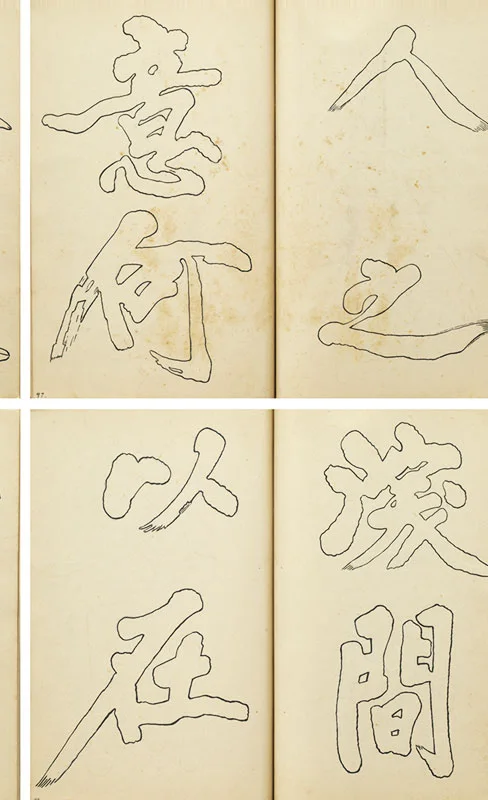 人之
意何
間
以在